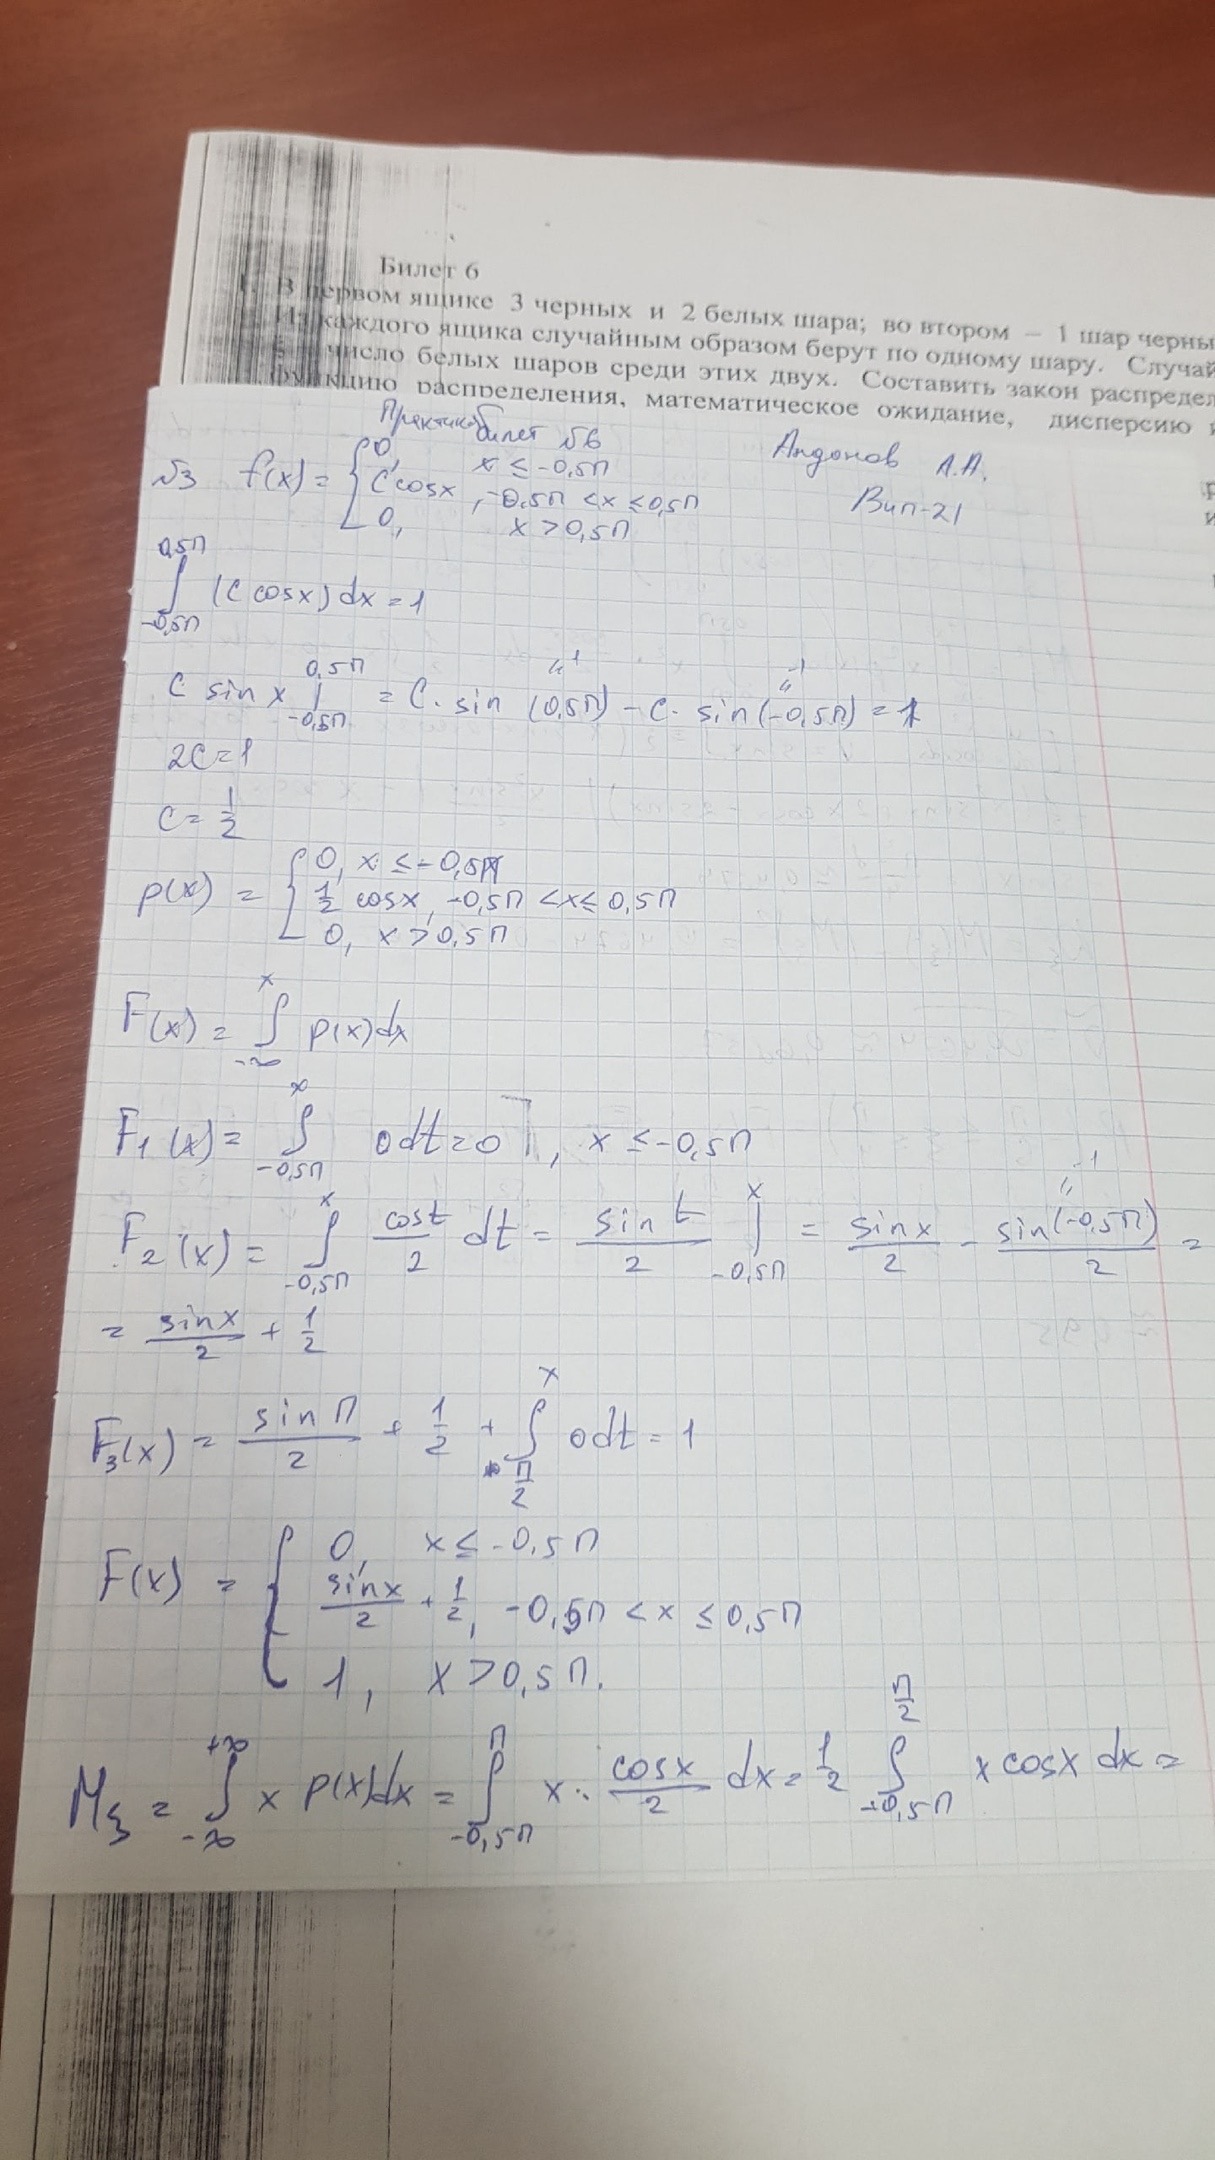 Билет 6
В первом ящике 3 черных и 2 белых шара; во втором – 1 шар черны
Из каждого ящика случайным образом берут по одному шару. Случай
число белых шаров среди этих двух. Составить закон распредел
функцию распределения, математическое ожидание, дисперсию и
Практика
билет №6
Андонов А.А.
Вип-21
№3 f(x) = { 0, x ≤ -0,5П
C cosx, -0,5П < x ≤ 0,5П
0, x > 0,5П
∫_{-0,5П}^{0,5П} (C cosx) dx = 1
C sin x |_{-0,5П}^{0,5П} = C · sin (0,5П) - C · sin (-0,5П) = 1
2C = 1
C = 1/2
p(x) = { 0, x ≤ -0,5П
1/2 cosx, -0,5П < x ≤ 0,5П
0, x > 0,5П
F(x) = ∫_{-∞}^{x} p(x)dx
F1(x) = ∫_{-0,5П}^{∞} 0dt = 0, x ≤ -0,5П
F2(x) = ∫_{-0,5П}^{x} cost/2 dt = sin t/2 |_{-0,5П}^{x} = sinx/2 - sin(-0,5П)/2 =
= sinx/2 + 1/2
F3(x) = sin П/2 + 1/2 + ∫_{П/2}^{x} 0dt = 1
F(x) = { 0, x ≤ -0,5П
sinx/2 + 1/2, -0,5П < x ≤ 0,5П
1, x > 0,5П.
Mξ = ∫_{-∞}^{+∞} x p(x)dx = ∫_{-0,5П}^{П} x · cosx/2 dx = 1/2 ∫_{-0,5П}^{П/2} x cosx dx =